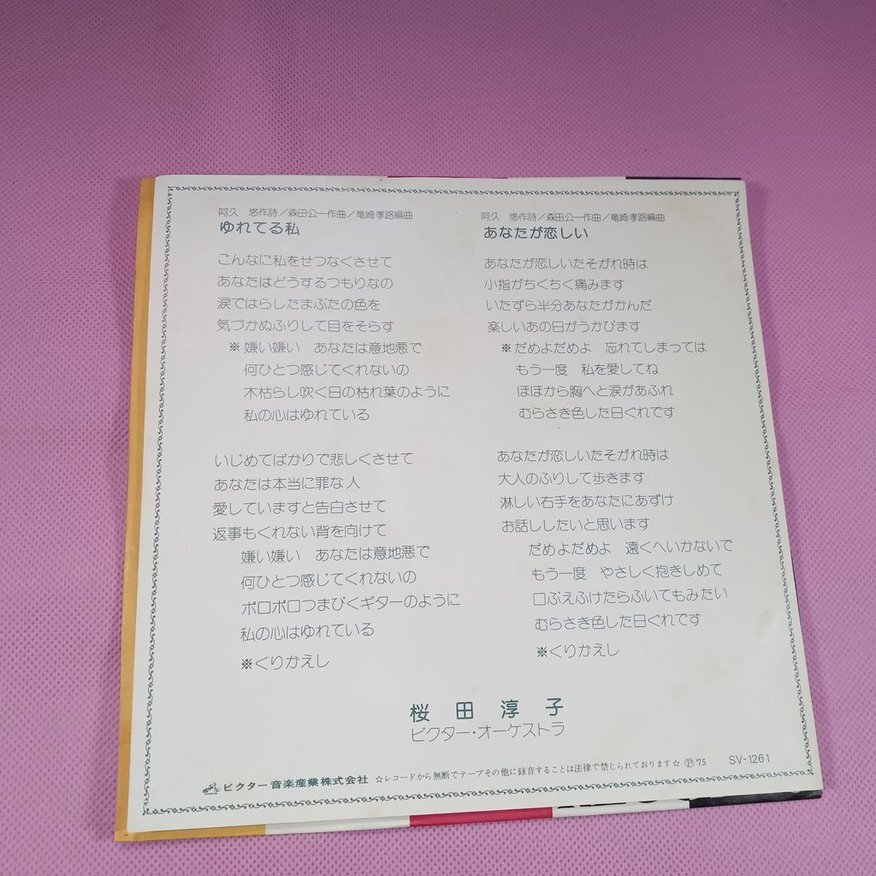 阿久　悠作詩／森田公一作曲／竜崎孝路編曲
ゆれてる私
こんなに私をせつなくさせて
あなたはどうするつもりなの
涙ではらしたまぶたの色を
気づかぬふりして目をそらす
※嫌い嫌い　あなたは意地悪で
何ひとつ感じてくれないの
木枯らし吹く日の枯れ葉のように
私の心はゆれている
いじめてばかりで悲しくさせて
あなたは本当に罪な人
愛していますと告白させて
返事もくれない背を向けて
嫌い嫌い　あなたは意地悪で
何ひとつ感じてくれないの
ポロポロつまびくギターのように
私の心はゆれている
※くりかえし
阿久　悠作詩／森田公一作曲／竜崎孝路編曲
あなたが恋しい
あなたが恋しいたそがれ時は
小指がちくちく痛みます
いたずら半分あなたがかんだ
楽しいあの日がうかびます
※だめよだめよ　忘れてしまっては
もう一度　私を愛してね
ほほから胸へと涙があふれ
むらさき色した日ぐれです
あなたが恋しいたそがれ時は
大人のふりして歩きます
淋しい右手をあなたにあずけ
お話ししたいと思います
だめよだめよ　遠くへいかないで
もう一度　やさしく抱きしめて
口ぶえふけたらふいてもみたい
むらさき色した日ぐれです
※くりかえし
桜田淳子
ビクター・オーケストラ
ビクター音楽産業株式会社　☆レコードから無断でテープその他に録音することは法律で禁じられております☆　Ⓟ'75　SV-1261